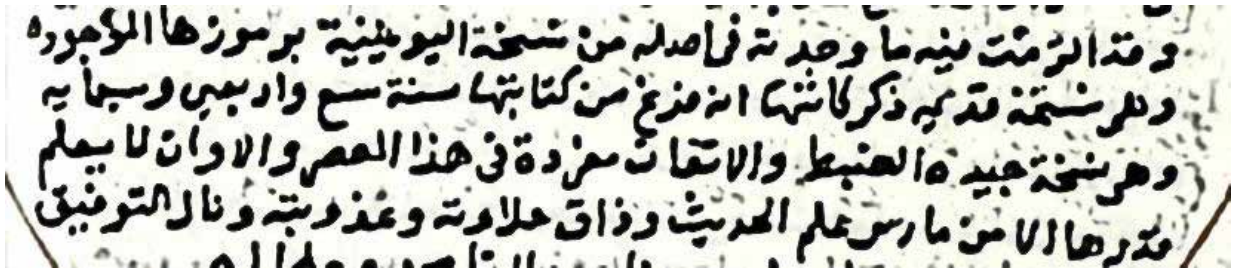 وقد التزمت فيه ما وجدته فى اصله من نسخة اليونينية برموزها الموجوده
وهى نسخة قديمه ذكر كاتبها انه فرغ من كتابتها سنة سبع واربعين وسبمايه
وهى نسخة جيده الضبط والاتقان مفردة فى هذا العصر والاوان لا يعلم
قدرها الا من مارس علم الحديث وذاق حلاوته وعذوبته ونال التوفيق